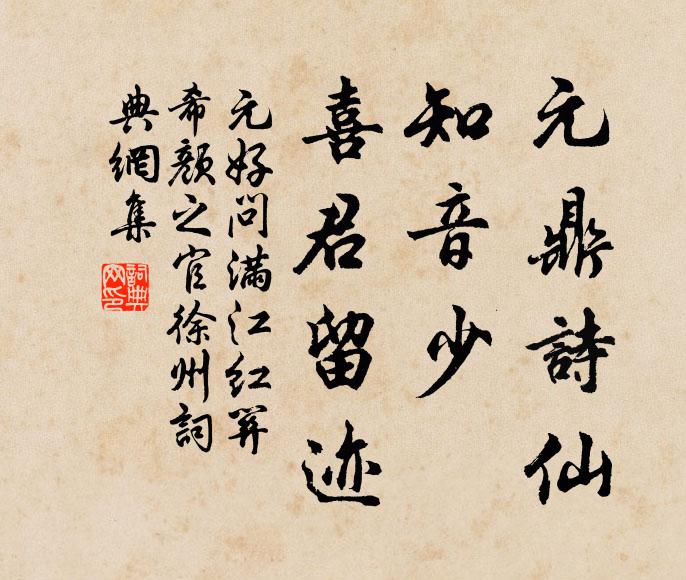 元鼎詩仙
知音少
喜君留迹
元好問滿江紅算
希顏之官徐州詞
典網集
詞典
网印